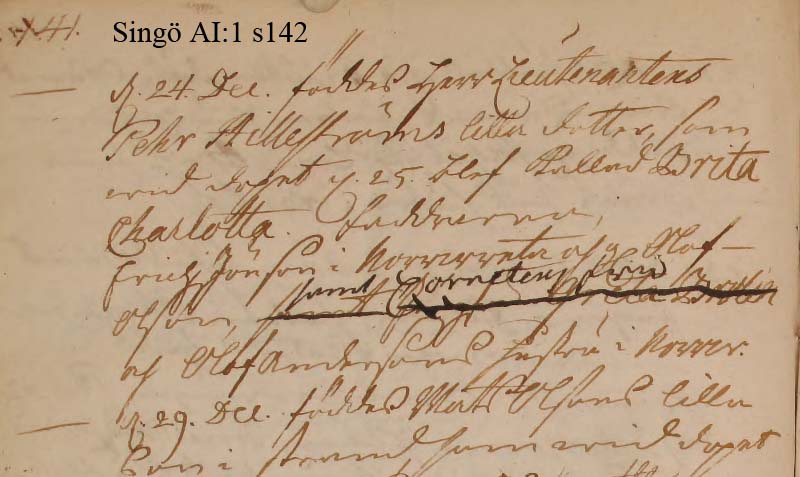 1741. Singö AI:1 s142
d. 24. Dec. föddes Herr Lieutenantens
Pehr Hillesträms lilla dotter, som
wid dopet d. 25. blef kallad Brita
Charlotta. Faddrarna,
Erich Jönson i Norrwreta och Olof
Olson, samt Cornetens fru
samt Brolin
och Olof Andersons hustru i Norrwr.
d. 29. Dec. föddes Mats Olsons lilla
Son i strand, som wid dopet